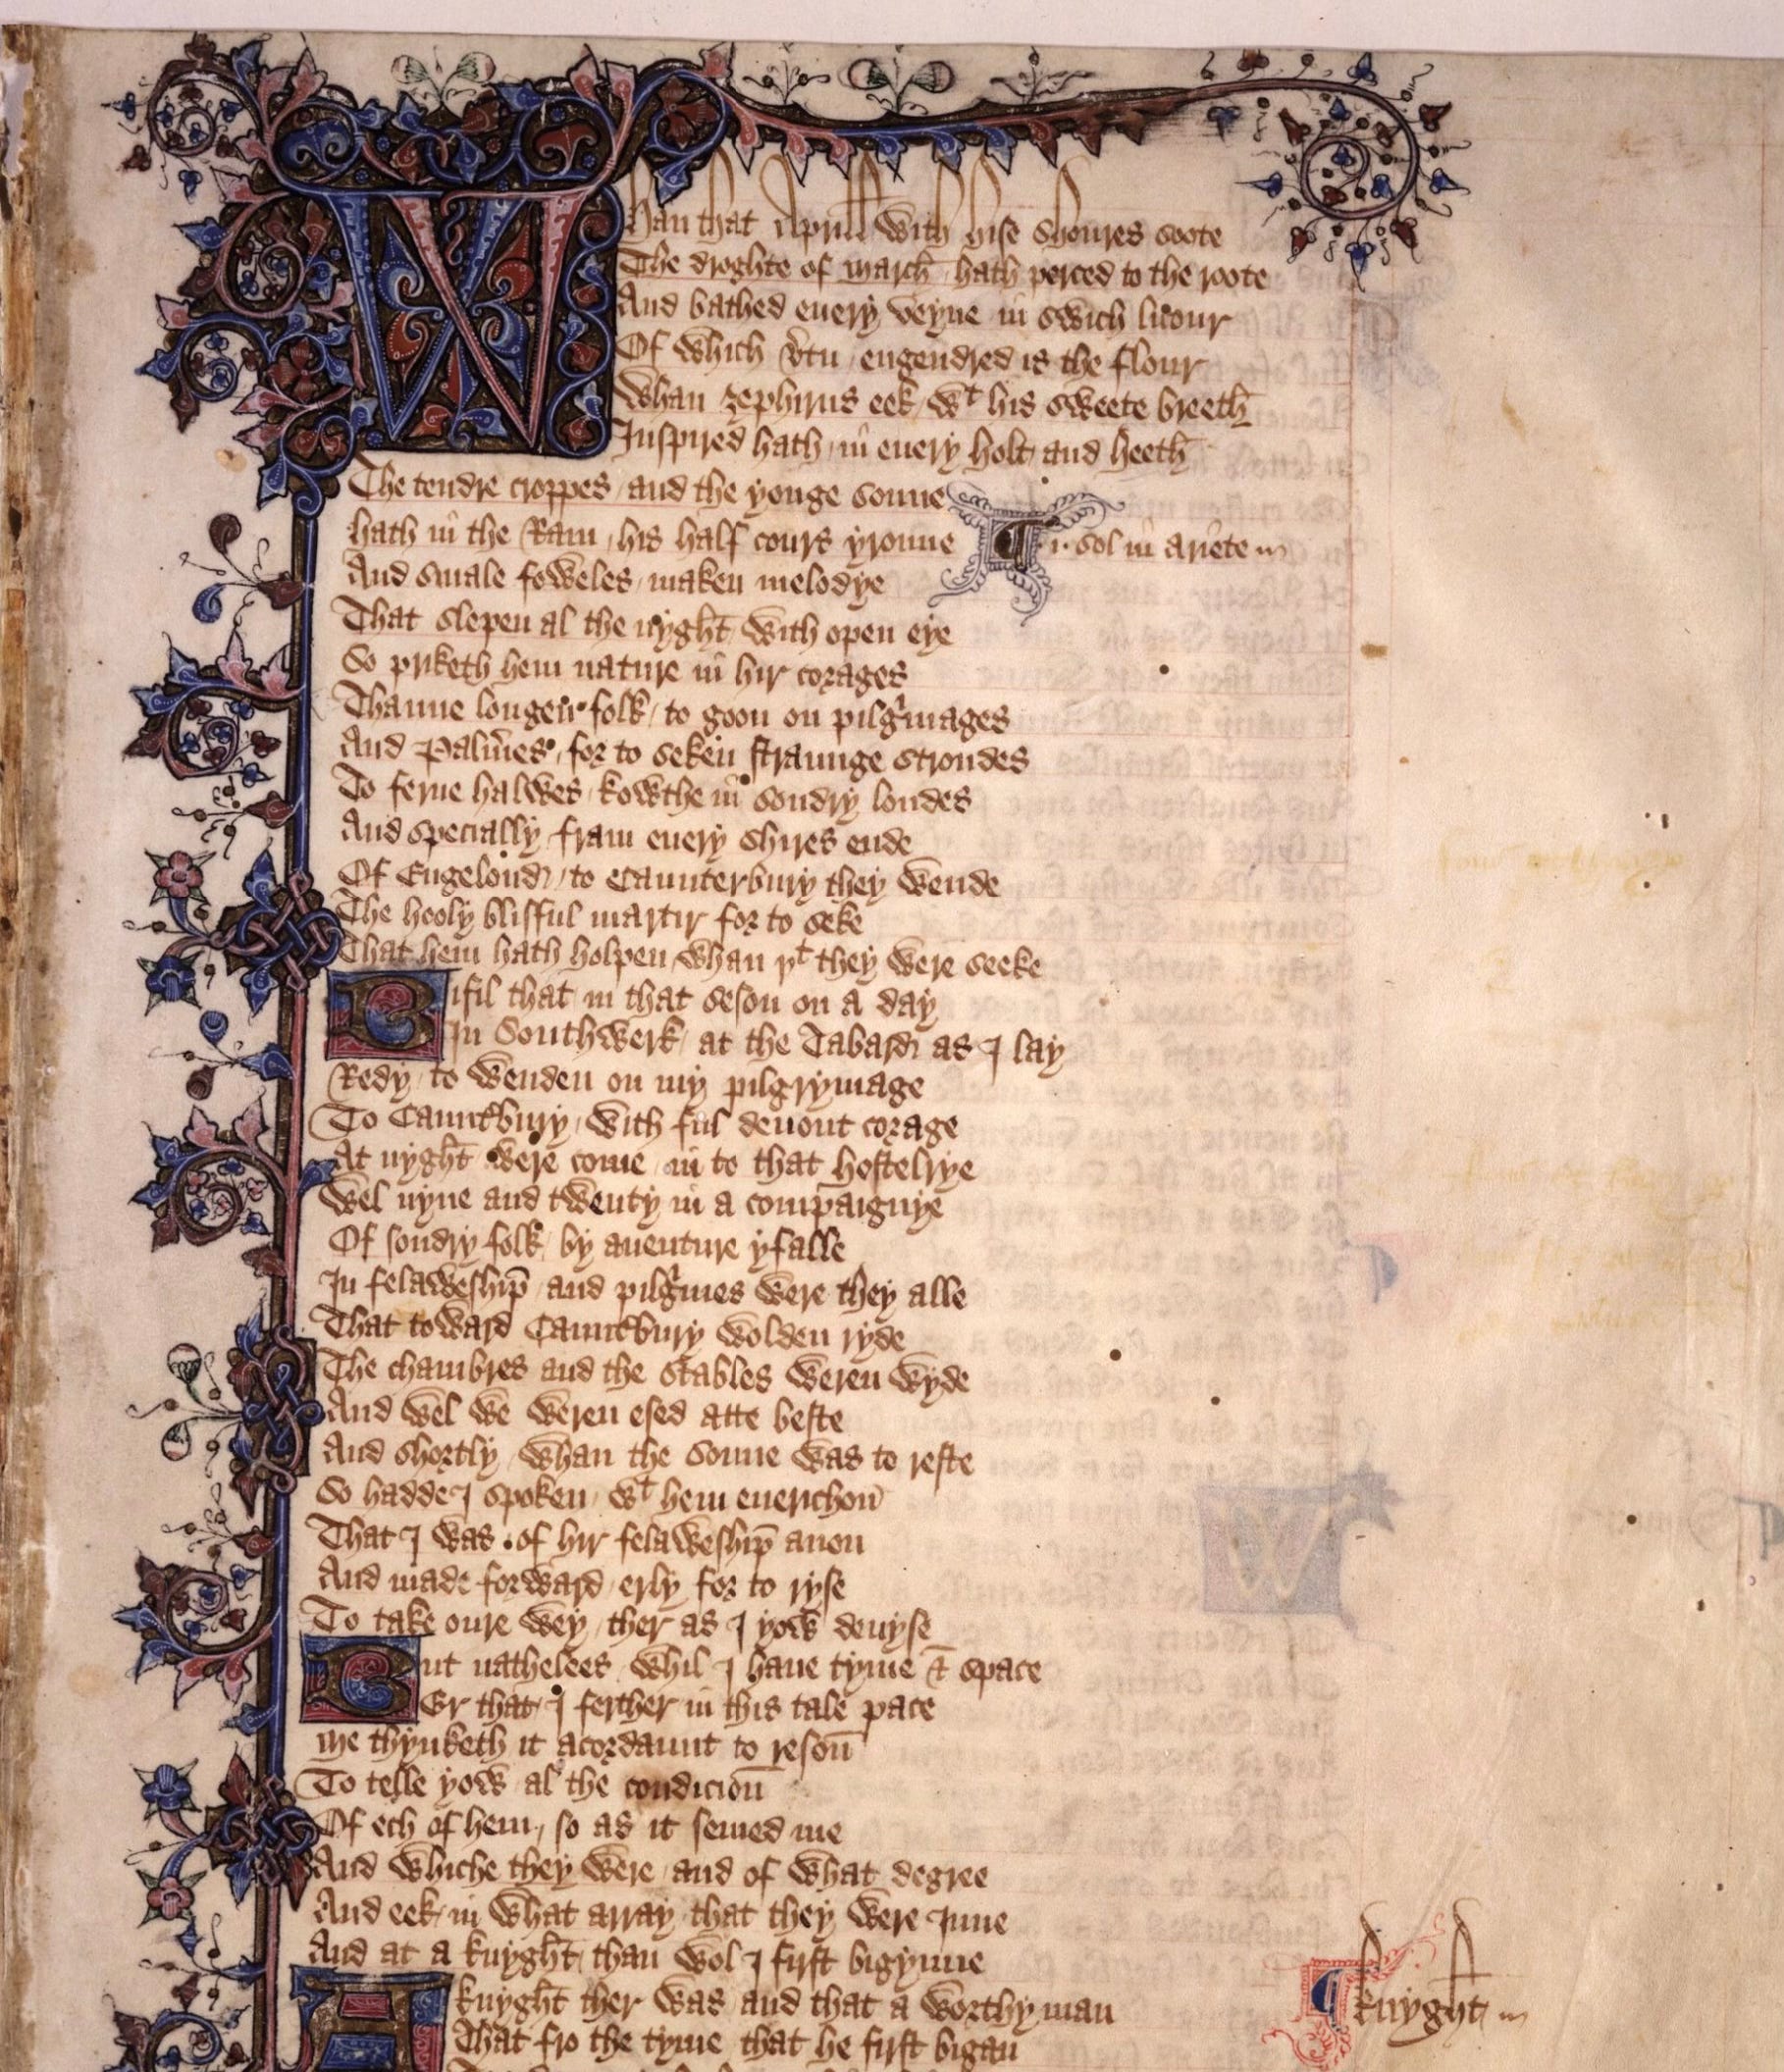 Whan that Aprill with hise shoures soote
The droghte of march hath perced to the roote
And bathed euery veyne in swich licour
Of which vtu engendred is the flour
Whan zephirus eek wt his sweete breeth
Inspired hath in euery holt and heeth
The tendre croppes and the yonge sonne
hath in the Ram his half cours yronne
.i. sol in ariete
And smale foweles maken melodye
That slepen al the nyght with open eye
So priketh hem nature in hir corages
Thanne longen folk to goon on pilgrmages
And Palmes for to seken straunge strondes
To ferne halwes kowthe in sondry londes
And specially fram euery shires ende
Of Engelond to Caunterbury they wende
The hooly blisful martir for to seke
That hem hath holpen whan yt they were seeke
Bifil that in that seson on a day
In Southwerk at the Tabard as I lay
Redy to wenden on my pilgrymage
To Cauntbury with ful deuout corage
At nyght were come in to that hostelrye
Wel nyne and twenty in a compaignye
Of sondry folk by auenture yfalle
In felaweship and pilgrmes were they alle
That toward Cauntbury wolden ryde
The chambres and the stables weren wyde
And wel we weren esed atte beste
And shortly whan the sonne was to reste
So hadde I spoken wt hem euerichon
That I was of hir felaweship anon
And made forward erly for to ryse
To take oure wey ther as I yow deuyse
But nathelees whil I haue tyme & space
Er that I ferther in this tale pace
me thynketh it acordaunt to reson
To telle yow al the condicion
Of ech of hem so as it semed me
And whiche they were and of what degree
And eek in what array that they were Inne
And at a knyght than wol I first bigynne
A knyght ther was and that a worthy man
knyght
That fro the tyme that he first bigan